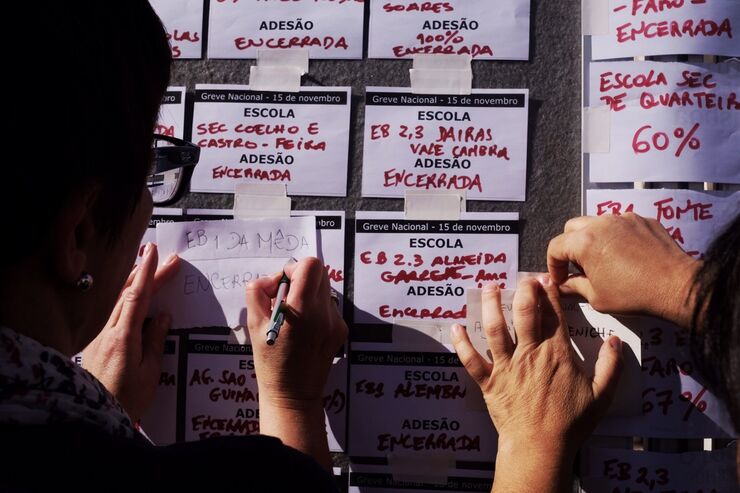 ADESÃO
ENCERRADA
SOARES
ADESÃO
100%
ENCERRADA
FARO
ENCERRADA
Greve Nacional - 15 de novembro
ESCOLA
SEC COELHO E
CASTRO - FEIRA
ADESÃO
ENCERRADA
Greve Nacional - 15 de novembro
ESCOLA
EB 2,3 DAIRAS
VALE CAMBRA
ADESÃO
ENCERRADA
ESCOLA SEC
DE QUARTEIR
60%
EB1 DA MÊDA
ENCERRADA
Greve Nacional - 15 de novembro
ESCOLA
EB 2.3 ALMEIDA
GARRETT - AMA
ADESÃO
ENCERRADA
EB1 FONTE
NICHE
Greve Nacional - 15 d
ES
AG. SÃO
GUIMA
ADES
ENCERRADA
Greve Nacional - 15 de novembro
ESCOLA
EB1 ALEMBR
ADESÃO
ENCERRADA
EB 2,3
FARO
67%
15 de novembro
EB 2,3